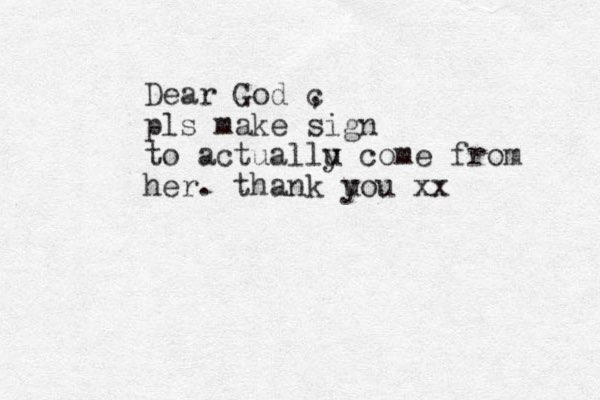 Dear God ,
pls make sign
to actually come from
her. thank you xx